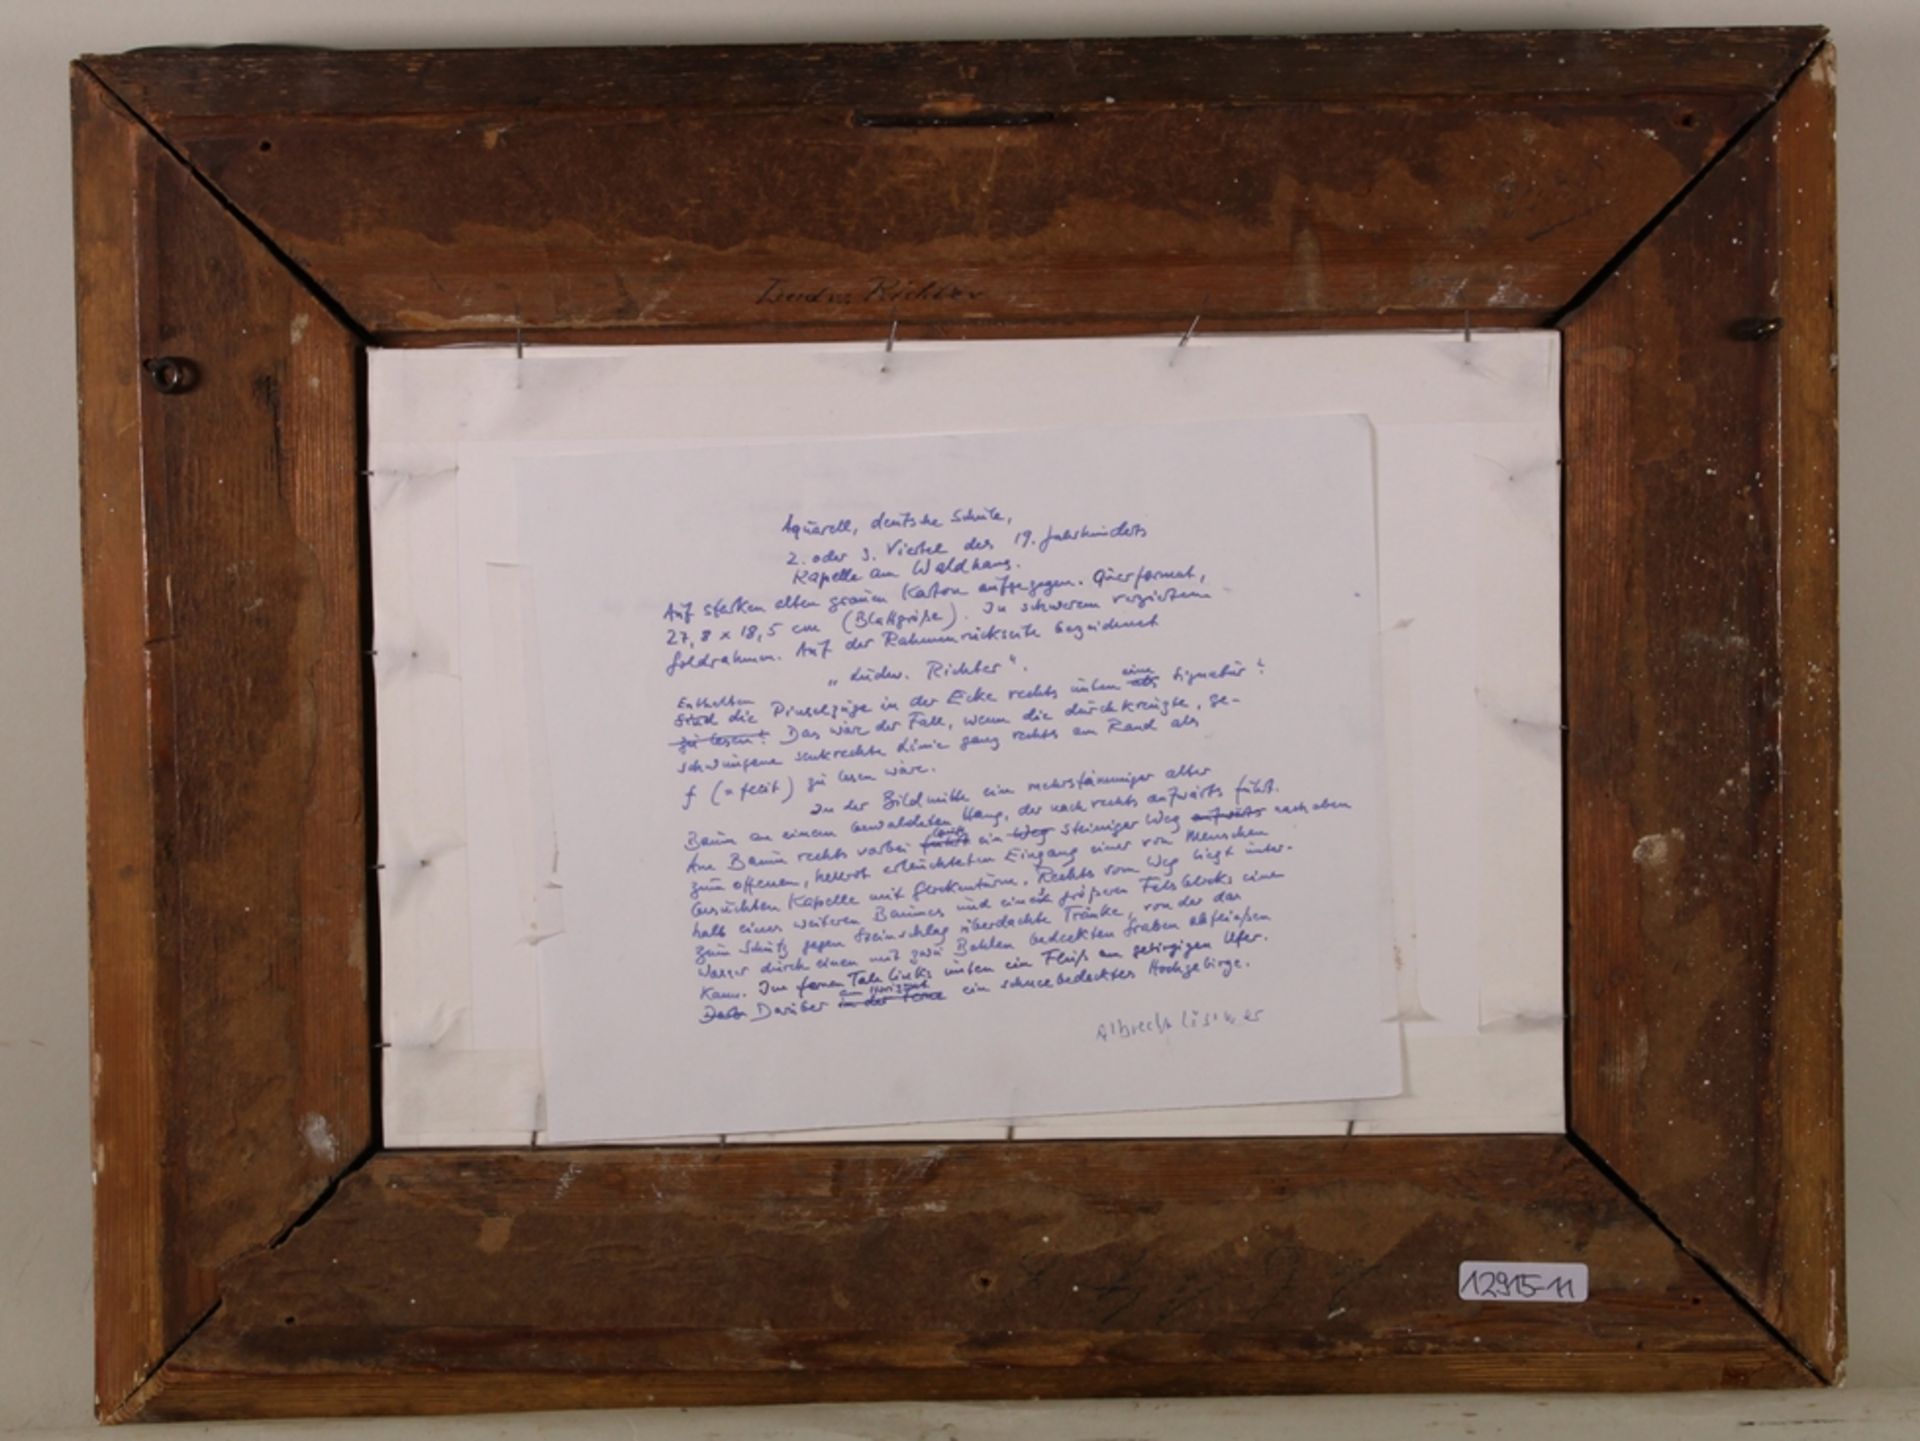 Ludw. Richter
Aquarell, deutsche Schule,
2. oder 3. Viertel des 19. Jahrhunderts
Kapelle am Waldhang.
Auf starken alten grauen Karton aufgezogen. Querformat,
27,8 x 18,5 cm (Blattgröße). In schwerem verziertem
Goldrahmen. Auf der Rahmenrückseite bezeichnet
"Ludw. Richter".
Enthalten
Sind die Pinselzüge in der Ecke rechts unten als eine Signatur?
zu lesen? Das wäre der Fall, wenn die durchkreuzte, ge-
schwungene senkrechte Linie ganz rechts am Rand als
f (= fecit) zu lesen wäre.
In der Bildmitte ein mehrstämmiger alter
Baum an einem bewaldeten Hang, der nach rechts aufwärts führt.
Am Baum rechts vorbei führt ein Weg steiniger Weg aufwärts nach oben
zum offenen, hellrot erleuchteten Eingang einer von Menschen
besuchten Kapelle mit Glockenturm. Rechts vom Weg liegt unter-
halb eines weiteren Baumes und eines größeren Felsblocks eine
zum Schutz gegen Steinschlag überdachte Tränke, von der das
Wasser durch einen mit zwei Bohlen bedeckten Graben abfließen
kann. Im fernen Tale links unten ein Fluß am gebirgigen Ufer.
am Horizont
Darüber in der Ferne ein schneebedecktes Hochgebirge.
Albrecht
12915-11